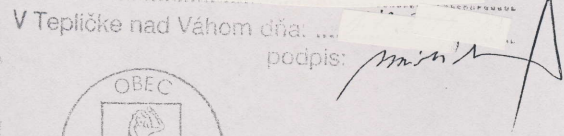 V Tepličke nad Váhom dňa: ....
podpis:
OBEC